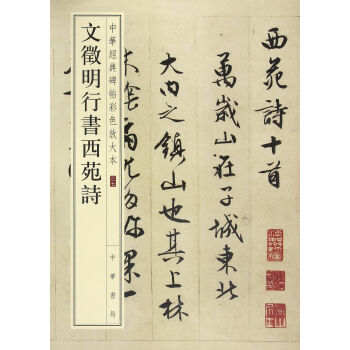 西苑詩十首
萬歲山在子城東北
大内之鎮山也其上林
木陰翳尤多珍果一
中華經典碑帖彩色放大本
文徵明行書西苑詩
中華書局